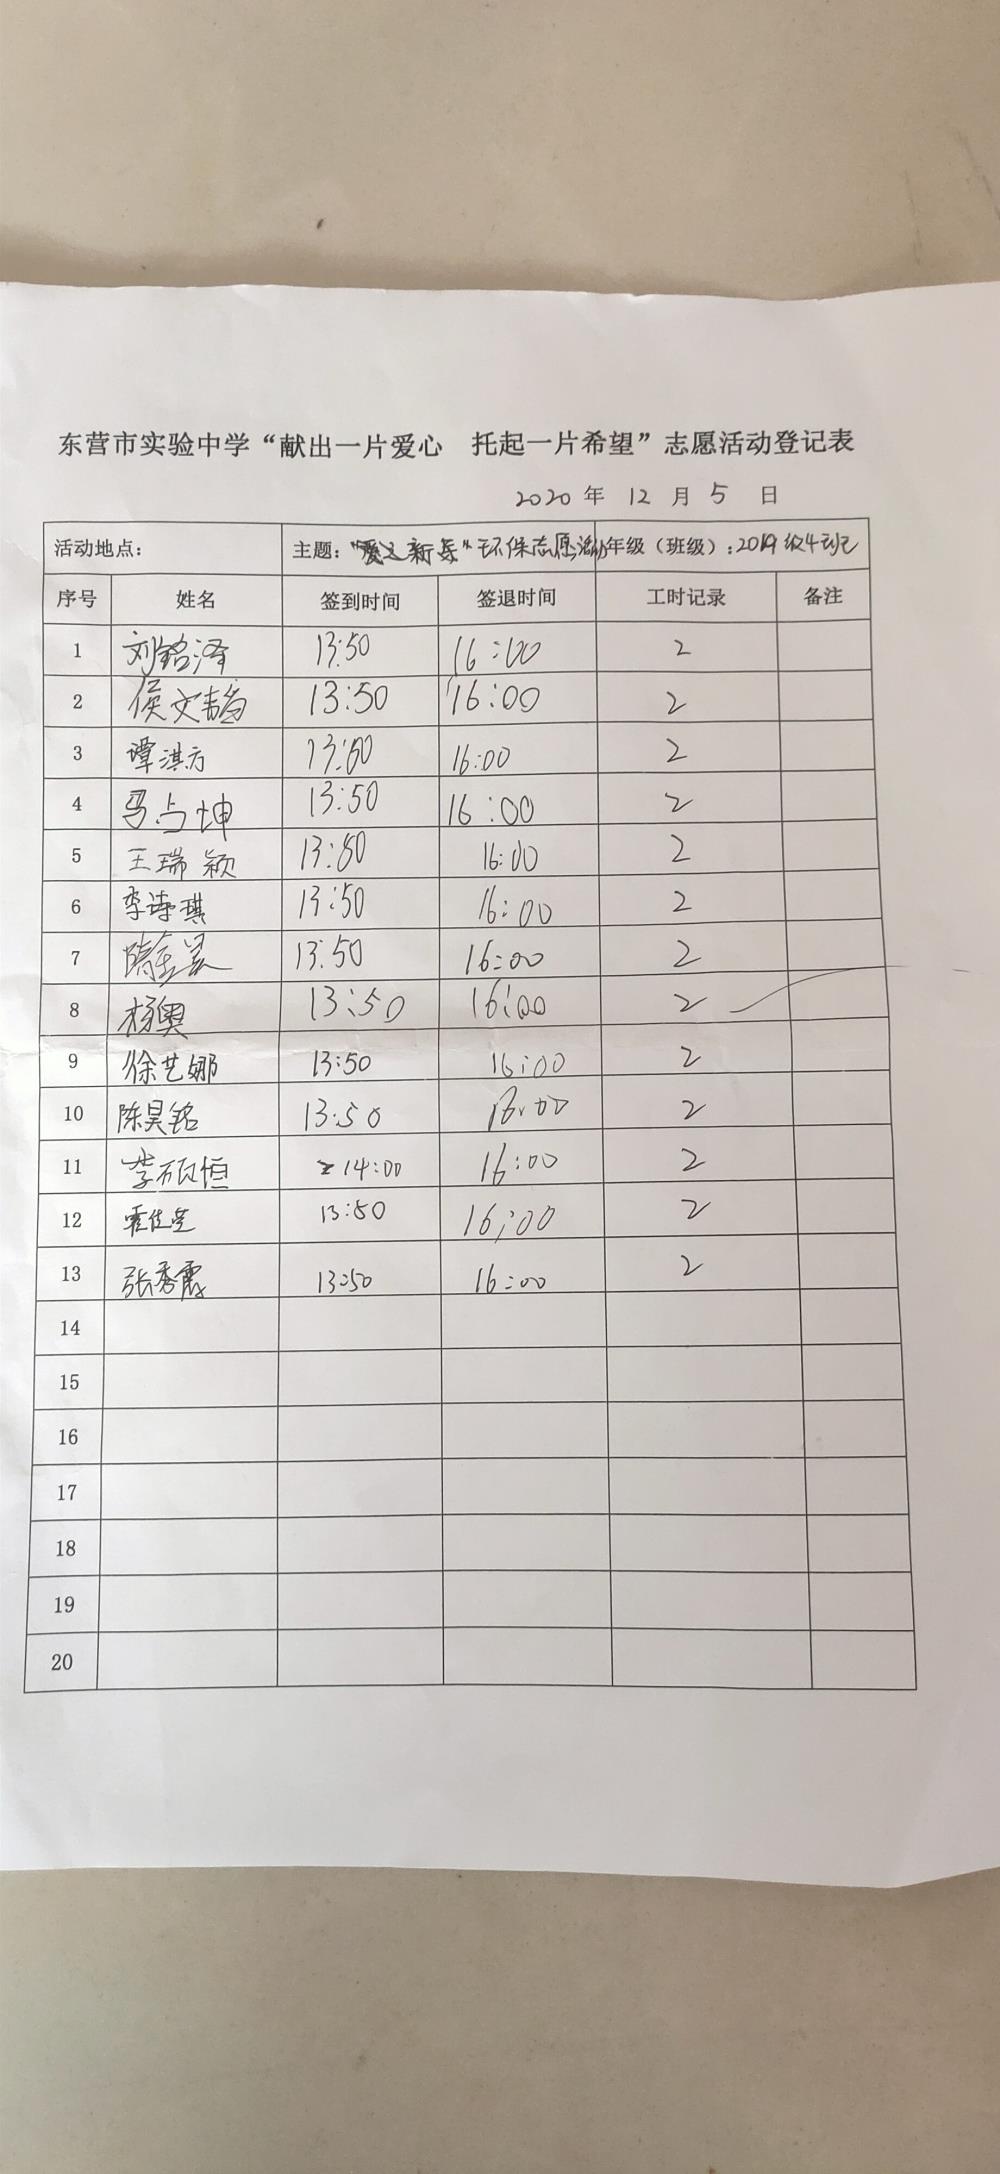 东营市实验中学“献出一片爱心 托起一片希望”志愿活动登记表
2020 年 12 月 5 日
活动地点： 主题：“爱之新 ”环保志愿活动 年级（班级）：2019级4班
序号 姓名 签到时间 签退时间 工时记录 备注
1 刘铭泽 13:50 16:00 2
2 侯文韬 13:50 16:00 2
3 谭淇方 13:50 16:00 2
4 马占坤 13:50 16:00 2
5 王瑞颖 13:50 16:00 2
6 李诗琪 13:50 16:00 2
7 隋 昊 13:50 16:00 2
8 杨奥 13:50 16:00 2
9 徐艺娜 13:50 16:00 2
10 陈昊铭 13:50 16:00 2
11 李硕恒 14:00 16:00 2
12 霍佳 13:50 16:00 2
13 张秀霞 13:50 16:00 2
14
15
16
17
18
19
20